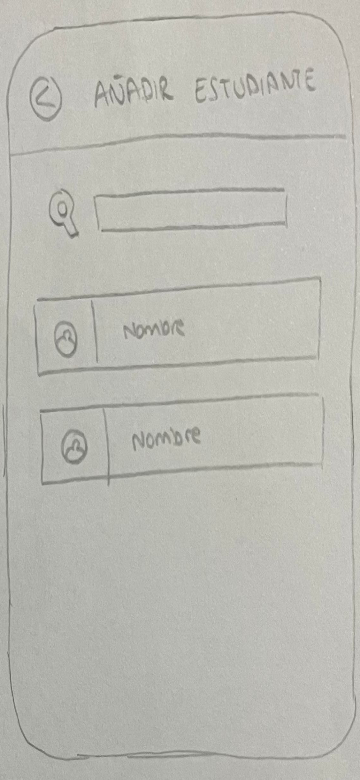 AÑADIR ESTUDIANTE
Nombre
Nombre